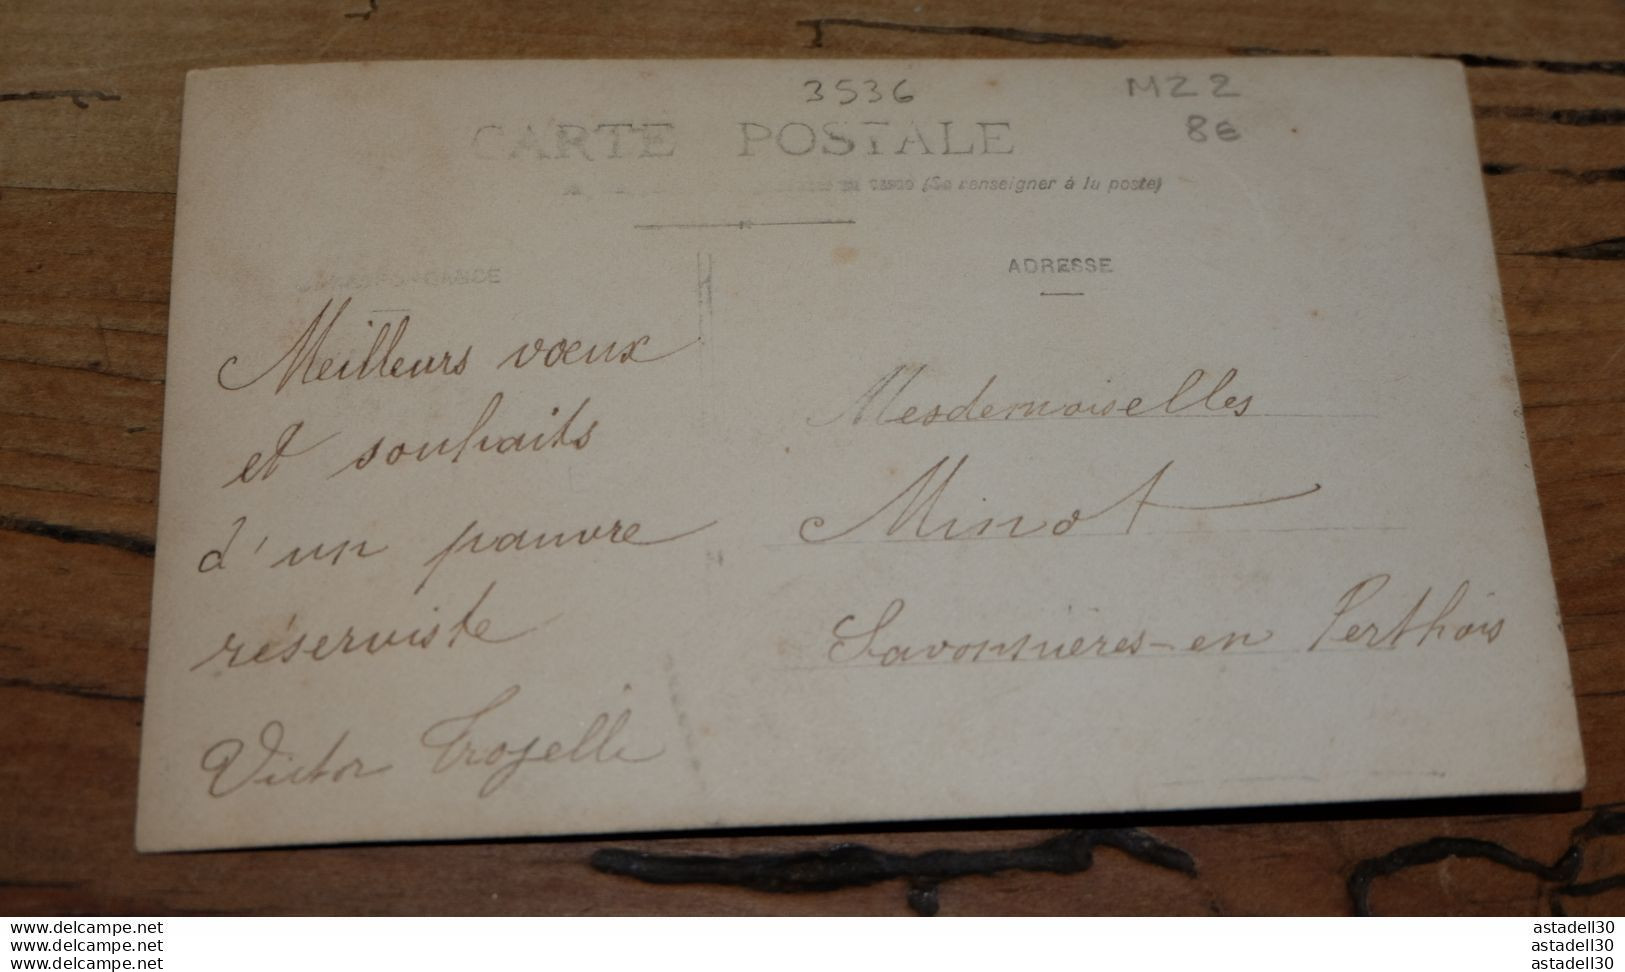 3536
MZ2
8€
CARTE POSTALE
(Se renseigner à la poste)
ADRESSE
Meilleurs vœux
et souhaits
d'un pauvre
réserviste
Victor
Mesdemoiselles
Minot
Savonnières-en Perthois
www.delcampe.net
www.delcampe.net
www.delcampe.net
astadell30
astadell30
astadell30